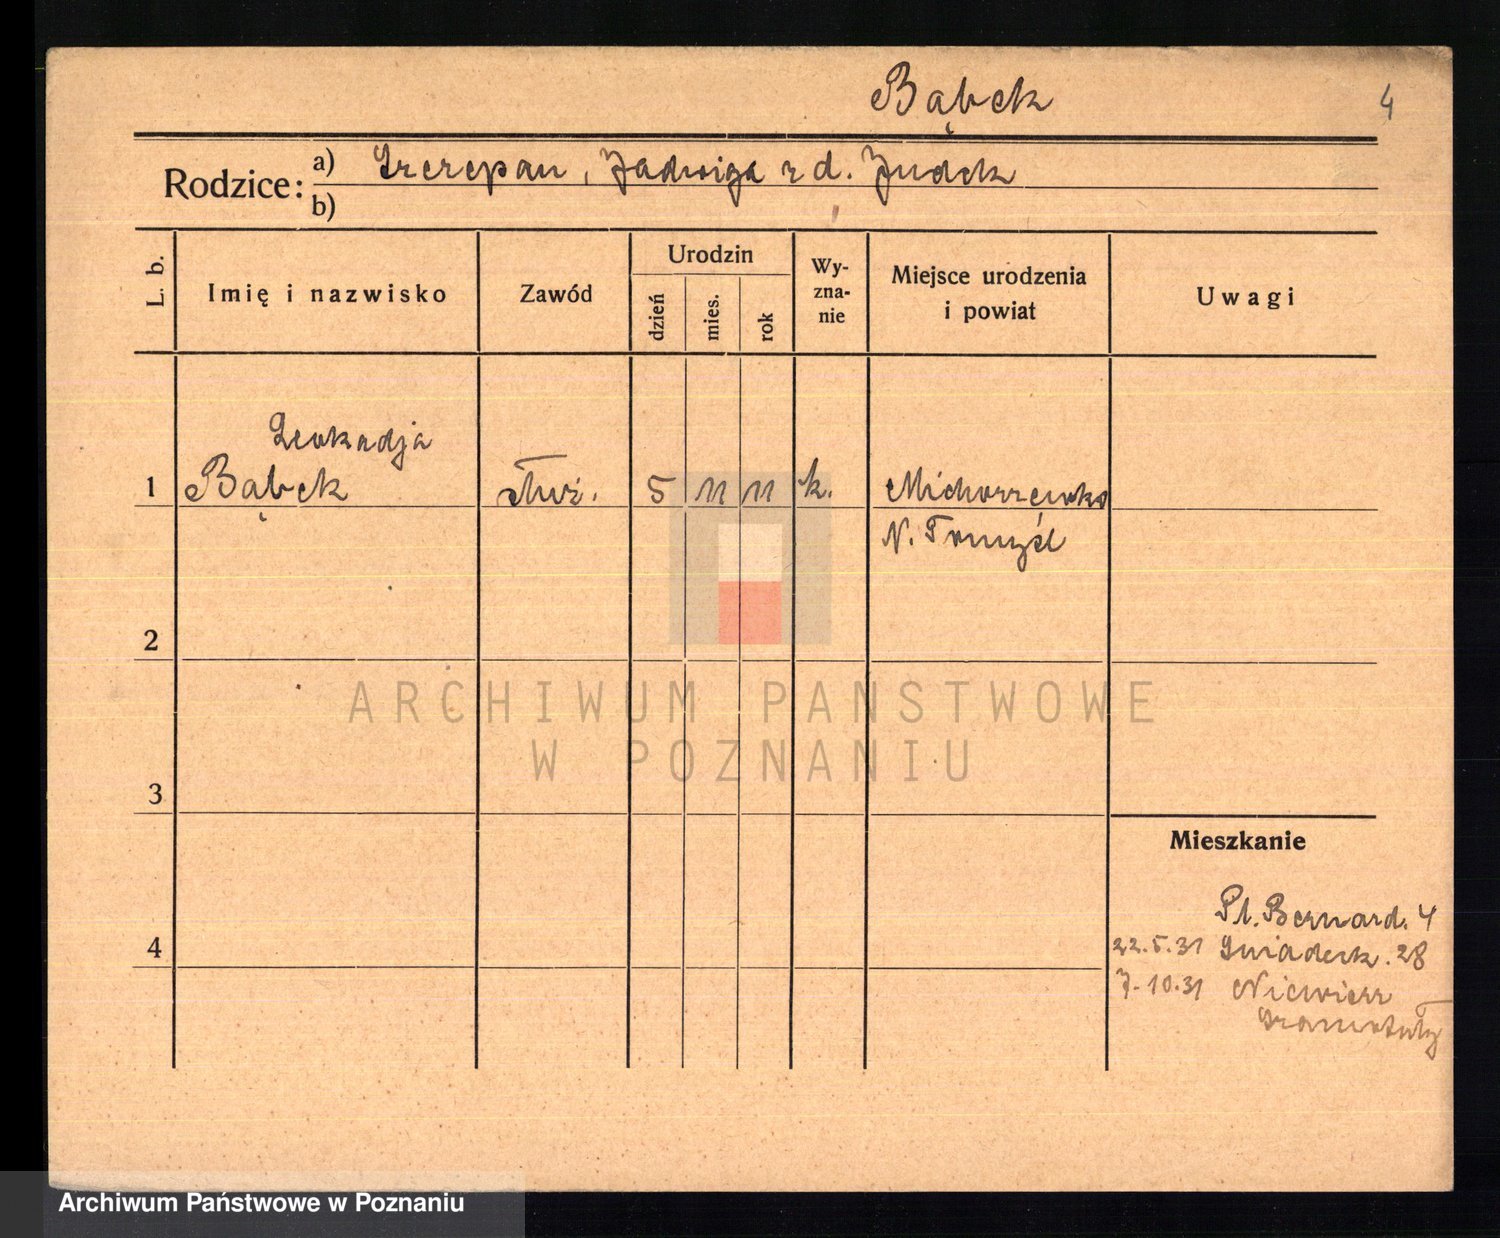 Bąbek
4
Rodzice:
a) Szczepan, Jadwiga z d. Judek
b)
L. b.
Imię i nazwisko
Zawód
Urodzin
dzień
mies.
rok
Wy-
zna-
nie
Miejsce urodzenia
i powiat
Uwagi
Leokadja
1 Bąbek służ. 5 11 11 k. Michorzewko
N. Tomyśl
2
ARCHIWUM PAŃSTWOWE
W POZNANIU
3
Mieszkanie
Pl. Bernard. 4
4
22.5.31 Śniadeck. 28
7.10.31 Niewierz
Szamotuły
Archiwum Państwowe w Poznaniu